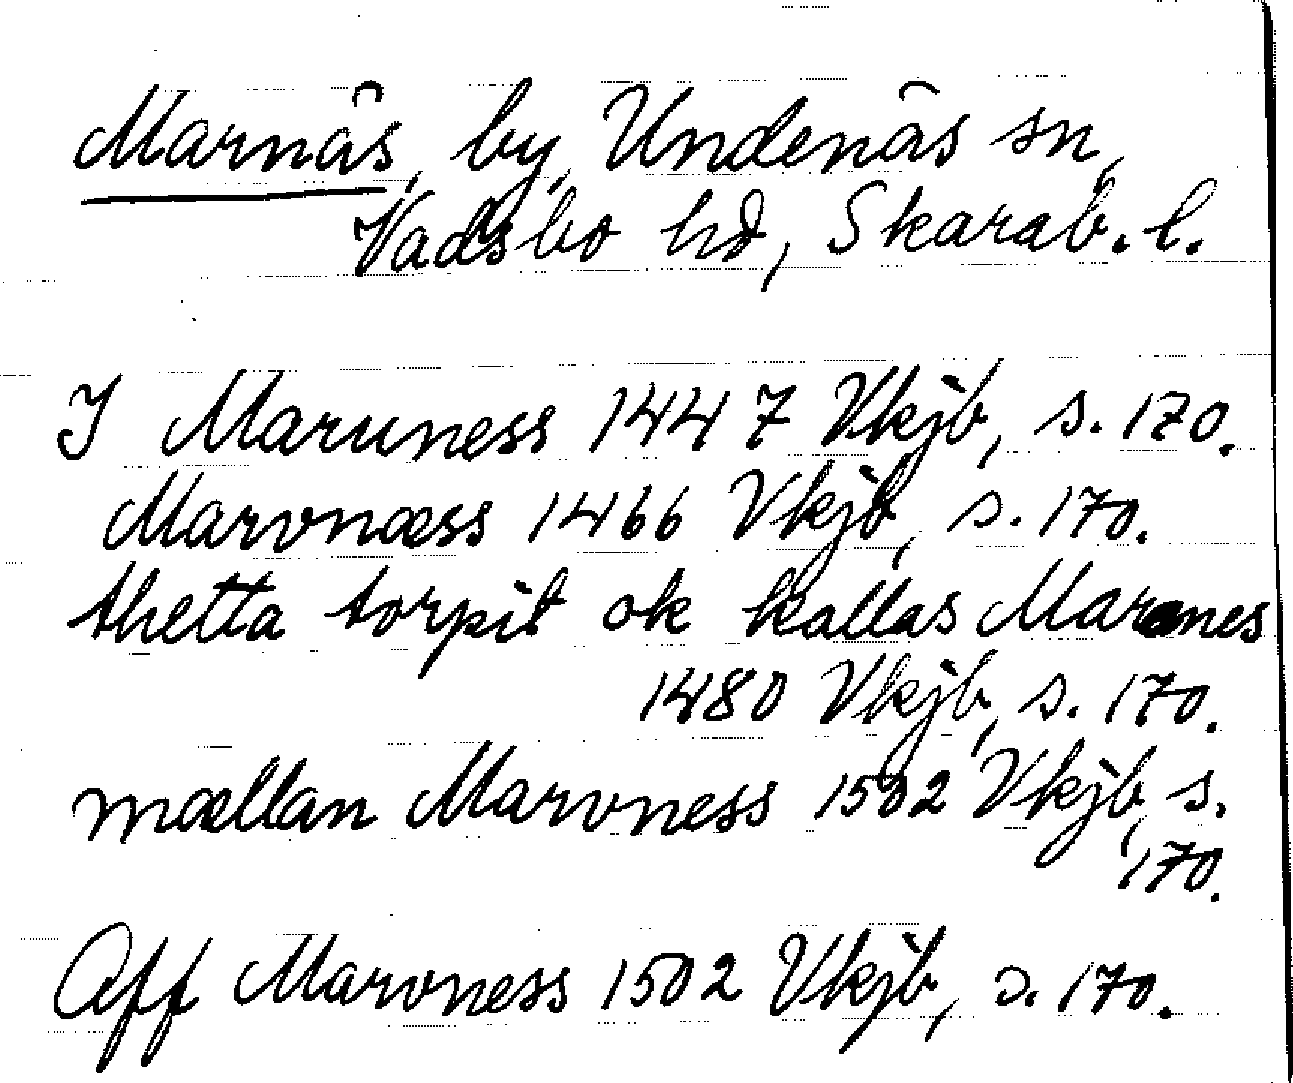 Marnäs, by, Undenäs sn,
Vadsbo hd, Skarab. l.
I Maruness 1447 Vkjb, s. 170.
Marvnæss 1466 Vkjb, s. 170.
thetta torpit ok kallas Maranes
1480 Vkjb, s. 170.
mællan Marvness 1502 Vkjb, s.
170.
Aff Marvness 1502 Vkjb, s. 170.